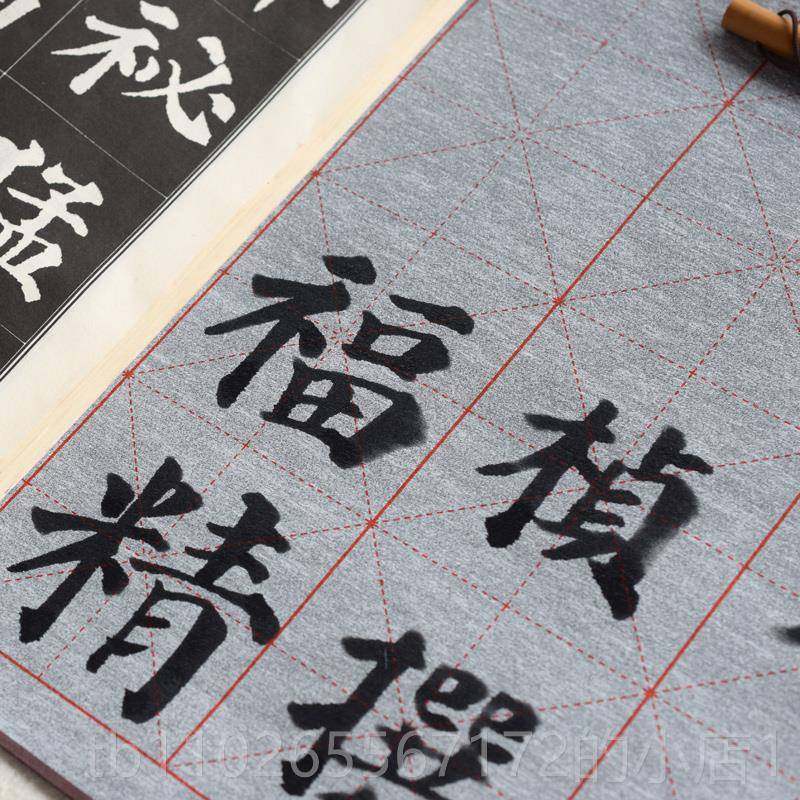 秘
猛
福
精
楨
撰
tb110265567172的小店1